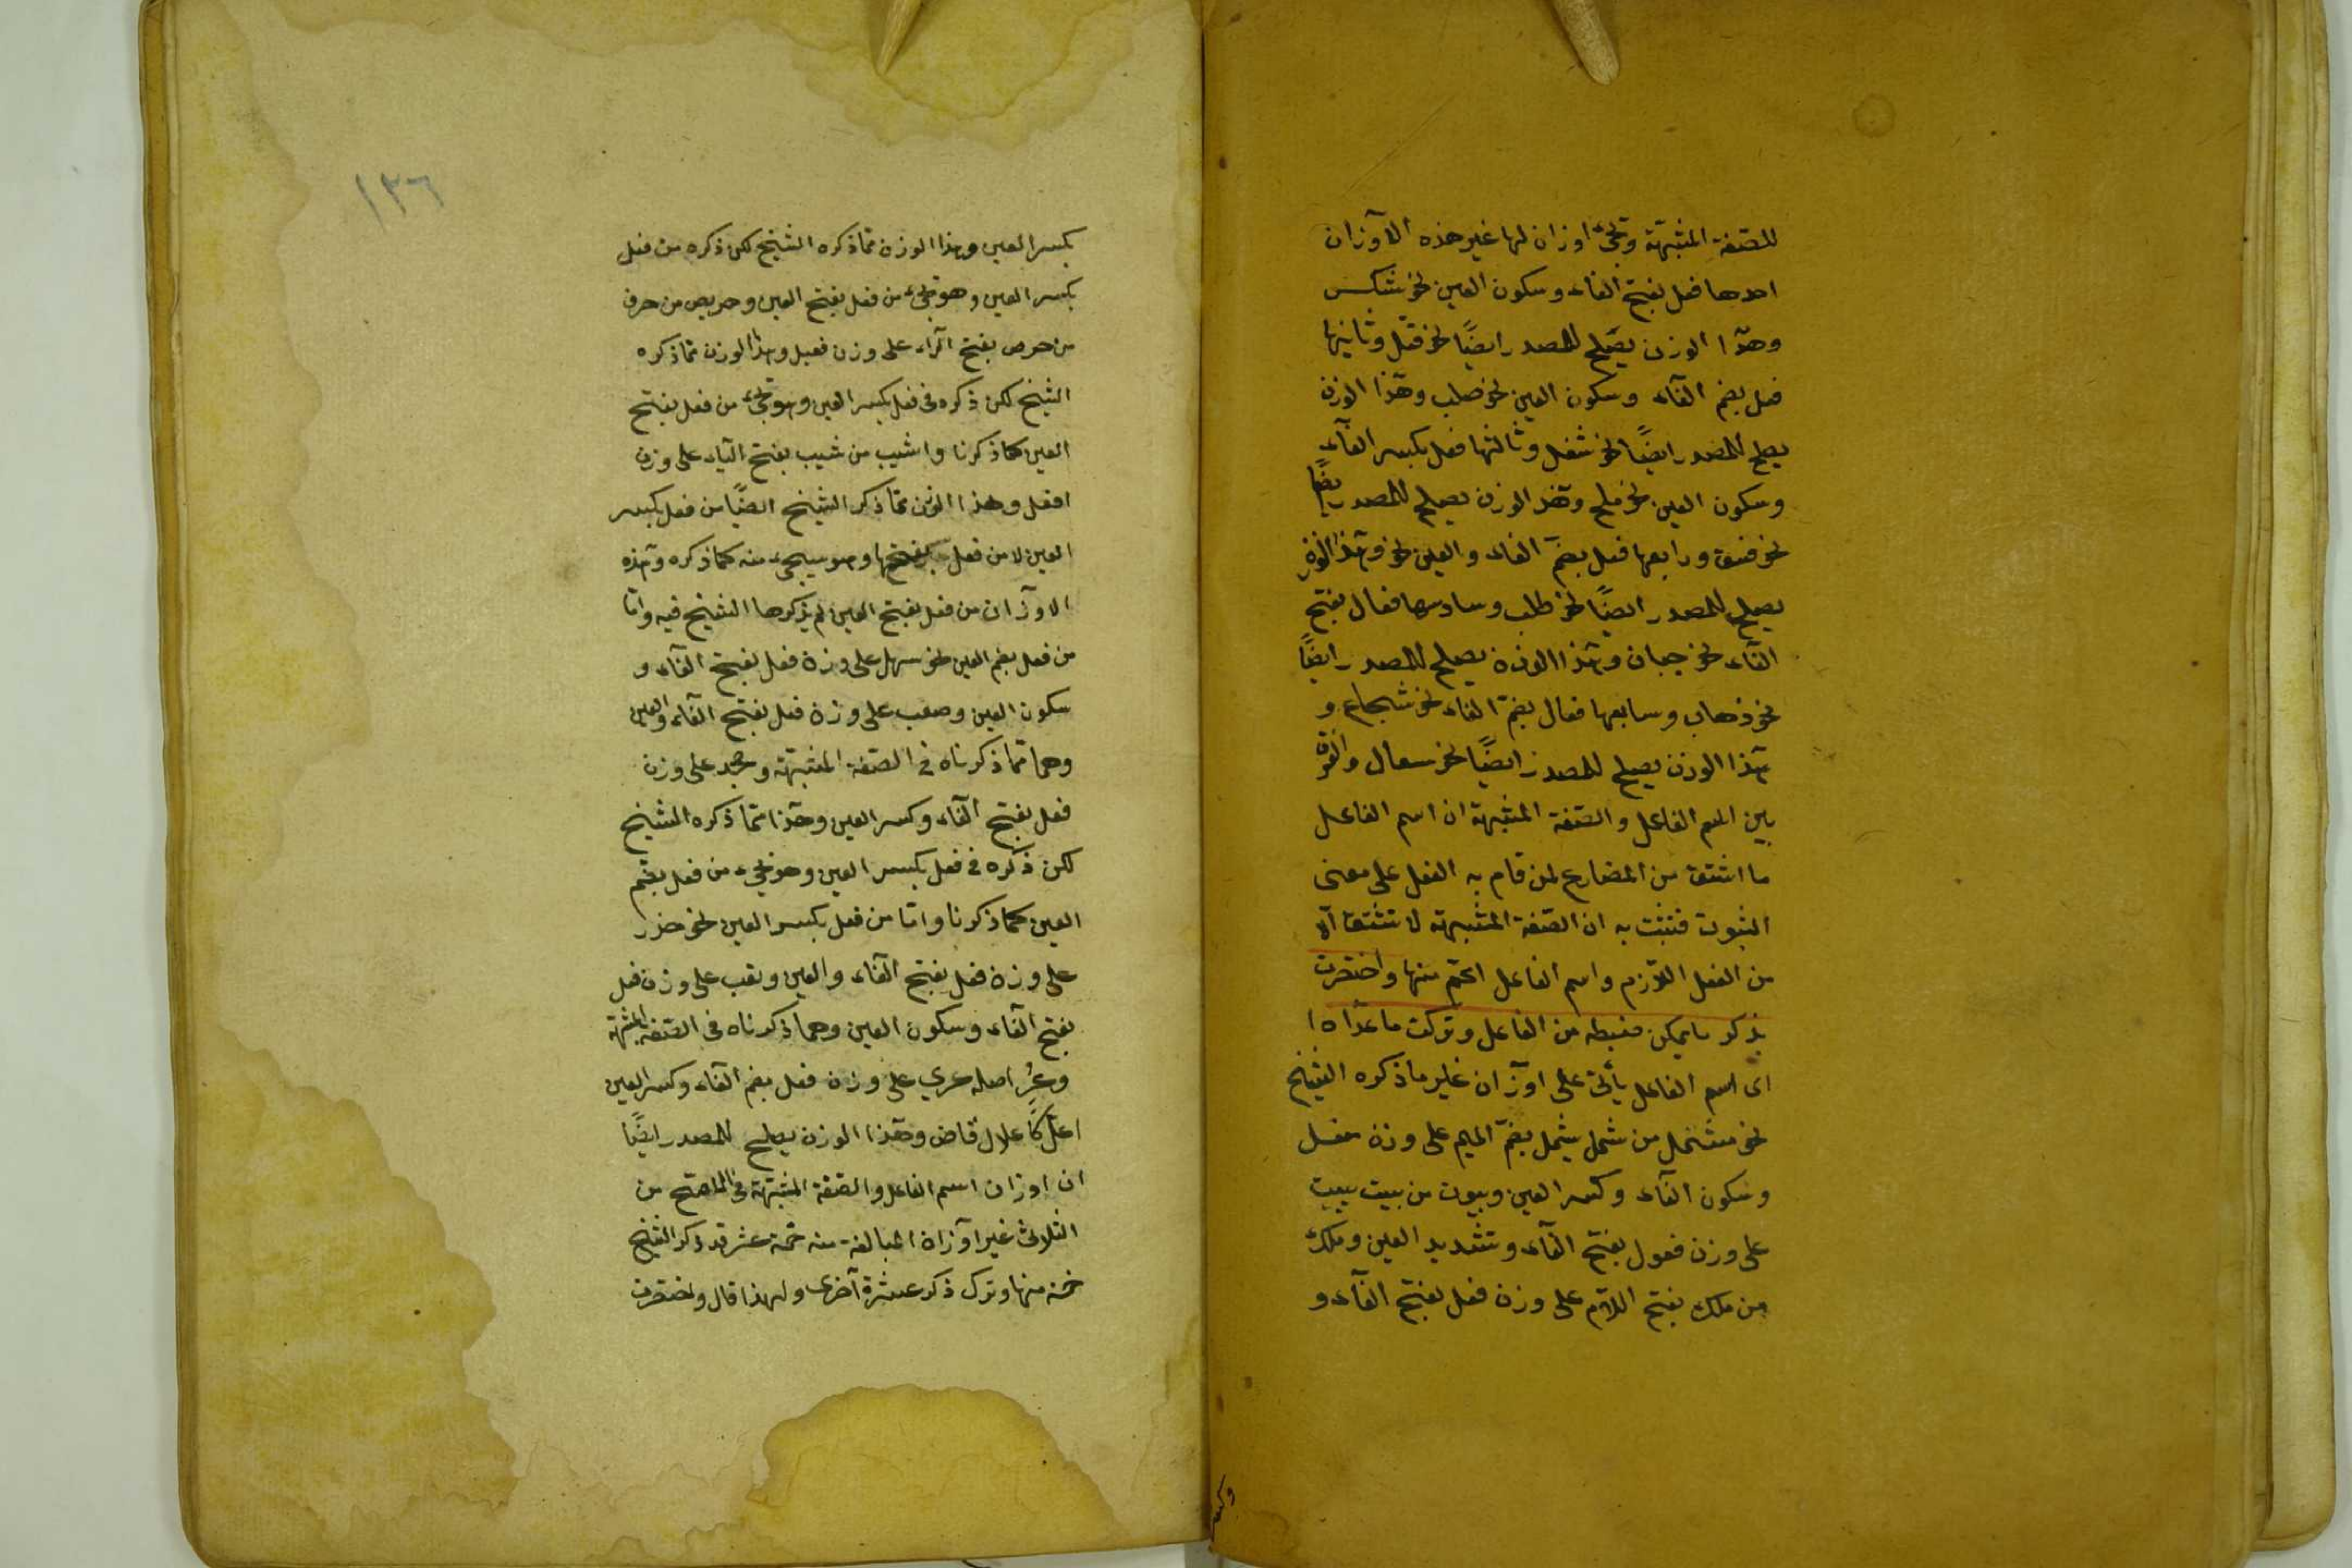 للصّفة المشبّهة وتجئ اوزان لها غير هذه الآوزان
احدها فعل بفتح الفاء وسكون العين نحو شكس
وهذا الوزن يصلح للمصدر ايضًا نحو قتل وثانيها
فعل بضم الفاء وسكون العين نحو صلب وهذا الوزن
يصلح للمصدر ايضًا نحو شغل وثالثها فعل بكسر الفآء
وسكون العين نحو ملح وهذ الوزن يصلح للمصدر ايضًا
نحو فسق ورابعها فعل بضمّ الفاء والعين نحو وهذا الوزن
يصلح للمصدر ايضًا نحو طلب وسادسها فعال بفتح
الفآء نحو جبان وهذا الوزن يصلح للمصدر ايضًا
نحو ذهاب وسابعها فعال بضمّ الفاء نحو شجاع و
هذا الوزن يصلح للمصدر ايضًا نحو سعال والفرق
بين اسم الفاعل والصّفة المشبّهة ان اسم الفاعل
ما اشتق من المضارع لمن قام به الفعل على معنى
الثبوت فثبت به ان الصّفة المشبهة لا تشتق الّا
من الفعل اللّازم واسم الفاعل اعمّ منها واختصرت
بذكر ما يمكن ضبطه من الفاعل وتركت ما عداه ا
اى اسم الفاعل يأتى على اوزان غير ما ذكره الشيخ
نحو مشمل من شمل يشمل بضمّ الميم على وزن مفعل
وسكون الفآء وكسر العين وبيوت من بيت يبيت
على وزن فعول بفتح الفآء وتشديد العين وملك
من ملك بفتح اللّام على وزن فعل بفتح الفآء و
وكسر
١٣٦
بكسر العين وهذا الوزن ممّا ذكره الشيخ لكن ذكره من فعل
بكسر العين وهو تجئ من فعل بفتح العين وحريص من حرف
من حرص بفتح الرّاء على وزن فعيل وهذا الوزن ممّا ذكره
الشيخ لكن ذكره فى فعل بكسر العين وهو تجئ من فعل بفتح
العين كما ذكرنا واشيب من شيب بفتح الياء على وزن
افعل وهذا الوزن ممّا ذكر الشيخ ايضًا من فعل بكسر
العين لا من فعل بفتحها وهو سيجئ منه كما ذكره وهذه
الاوزان من فعل بفتح العين لم يذكرها الشيخ فيه وامّا
من فعل بضم العين نحو سهل على وزن فعل بفتح الفآء و
سكون العين وصعب على وزن فعل بفتح الفآء والعين
وهما ممّا ذكرناه فى الصّفة المشبّهة و على وزن
فعل بفتح الفآء وكسر العين وهذا ممّا ذكره الشيخ
لكن ذكره فى فعل بكسر العين وهو تجئ من فعل بضم
العين كما ذكرنا وامّا من فعل بكسر العين نحو حذر
على وزن فعل بفتح الفآء والعين وتعب على وزن فعل
بفتح الفآء وسكون العين وهما ذكرناه فى الصّفة المشبّهة
وعرٍ اصله عري على وزن فعل بضم الفآء وكسر العين
اعلّ كاعلال قاض وهذا الوزن يصلح للمصدر ايضًا
ان اوزان اسم الفاعل والصّفة المشبّهة فى الاصحّ من
الثلاثى غير اوزان المبالغة منه خمسة عشر قد ذكر الشيخ
خمسة منها وترك ذكر عشرة آخرى ولهذا قال واختصرت